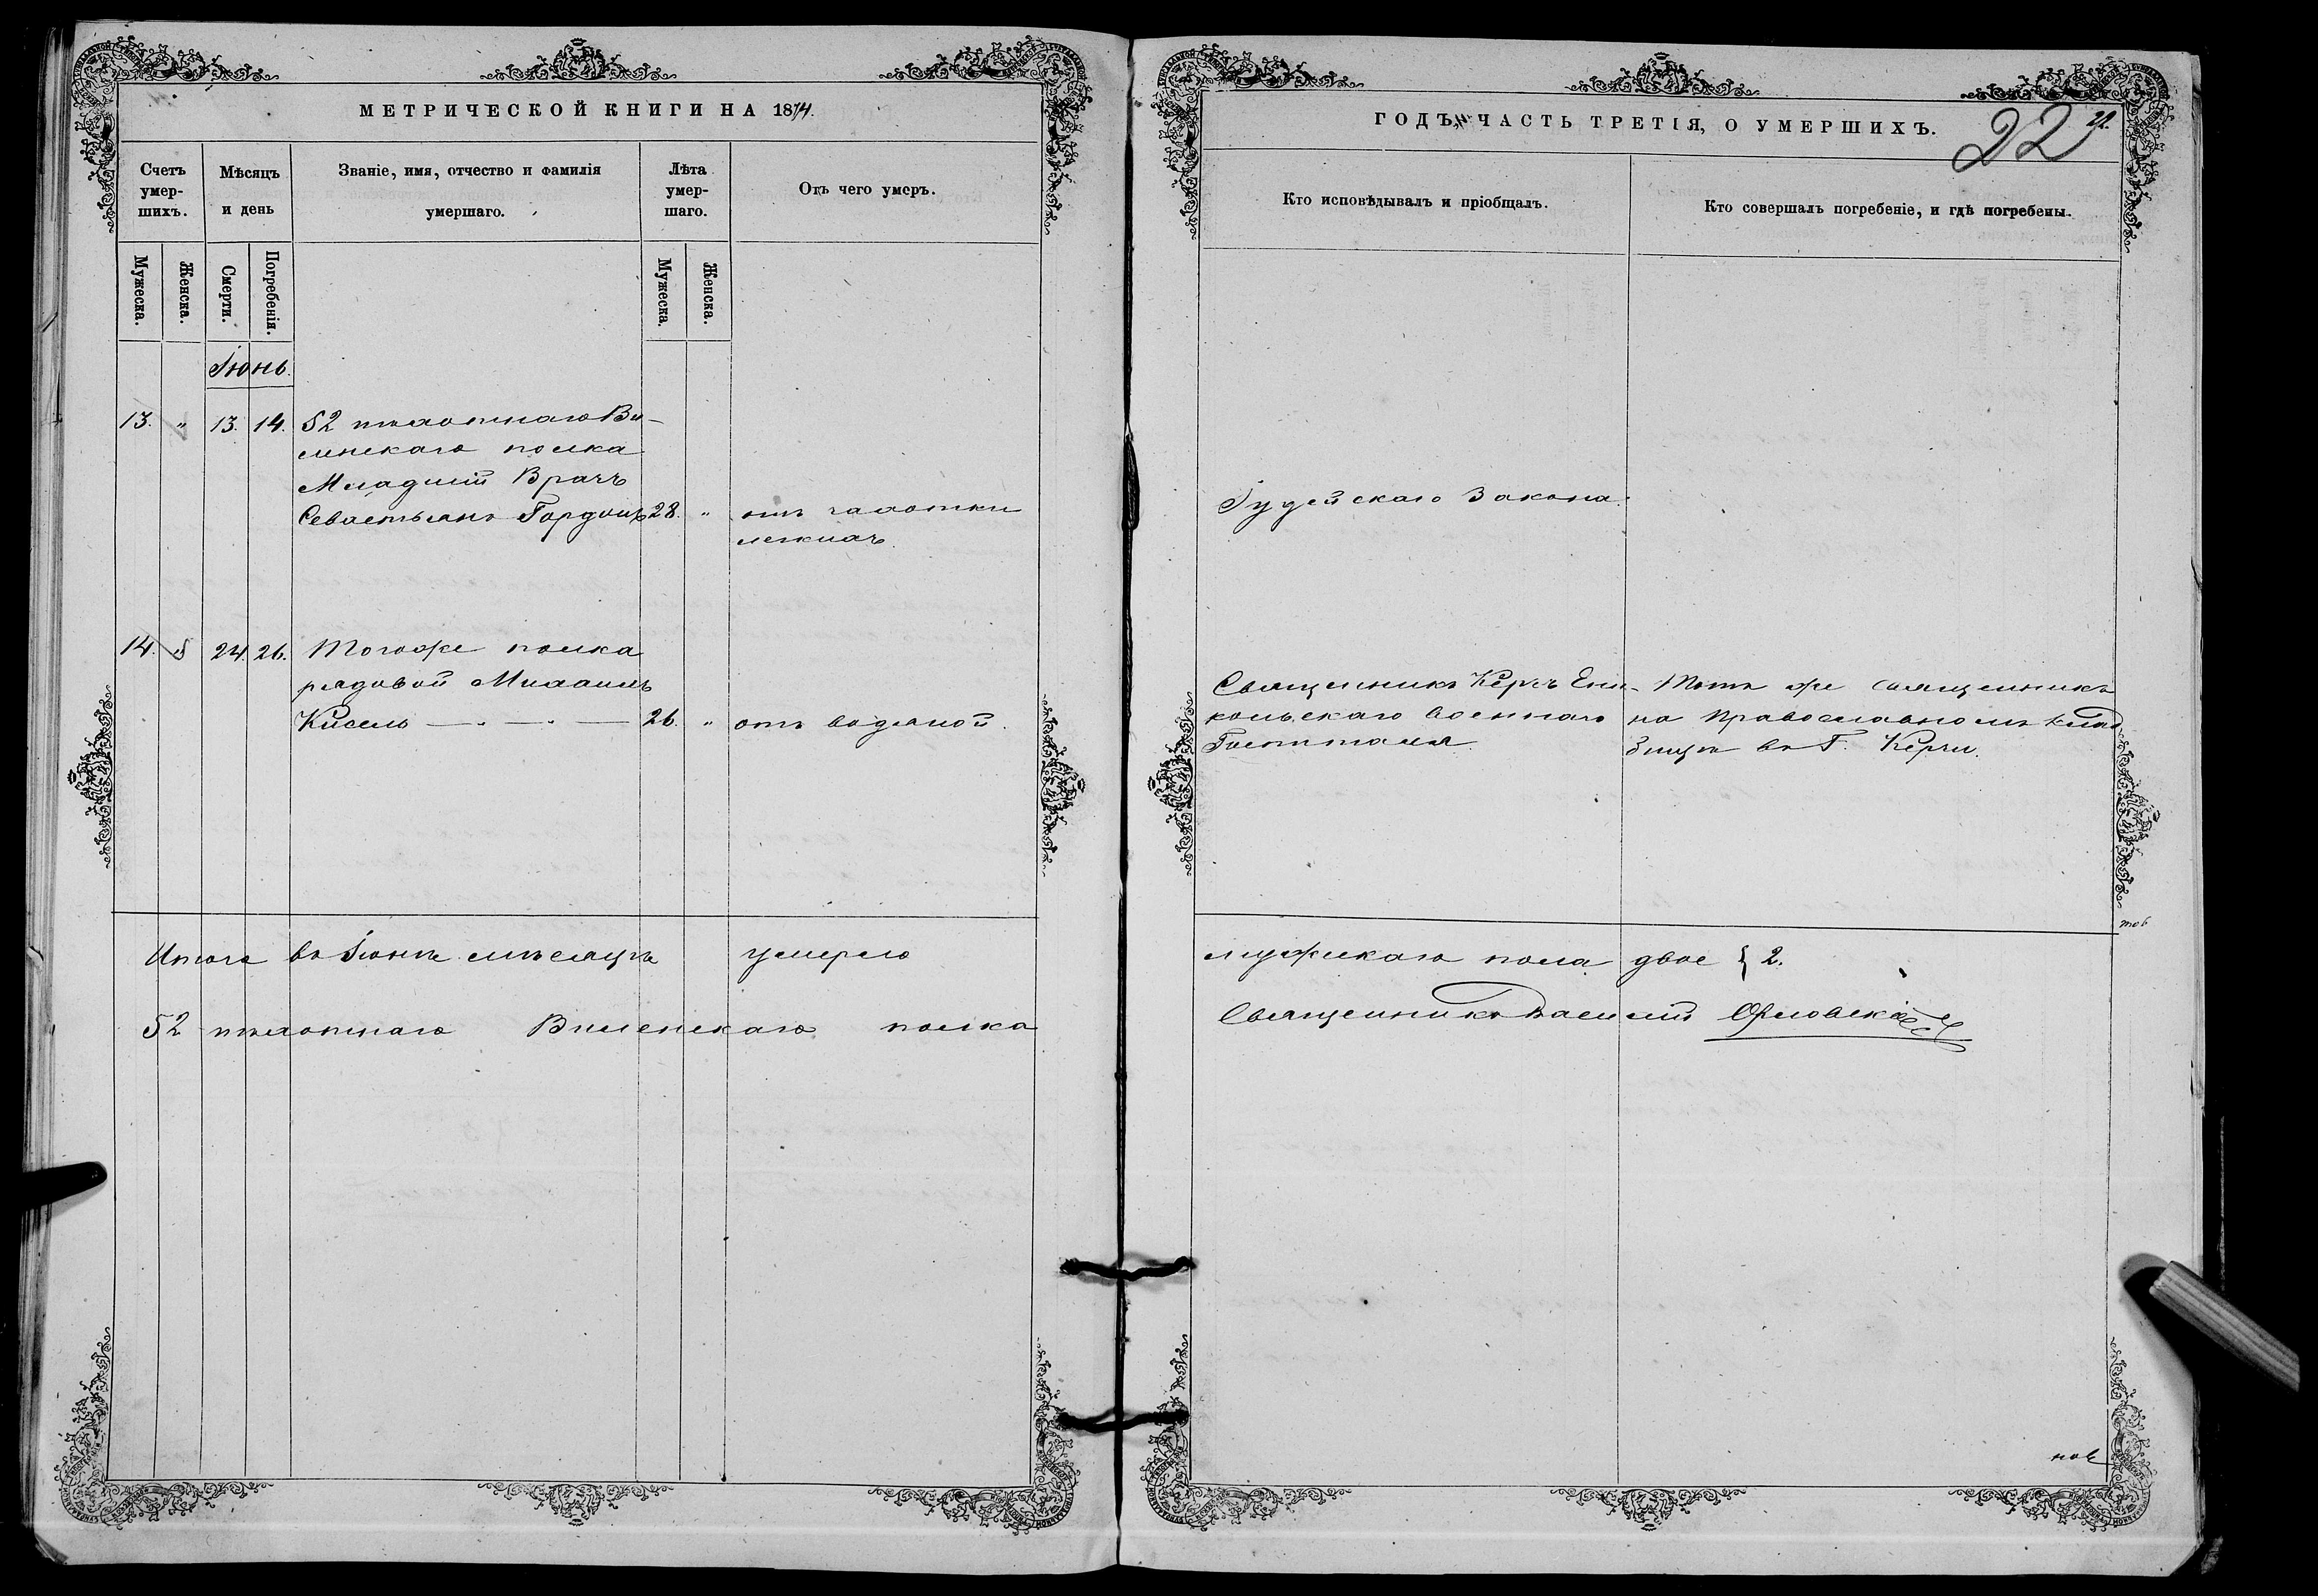 МЕТРИЧЕСКОЙ КНИГИ НА 1874.
Счетъ умер-шихъ.
Мѣсяцъ и день
Званіе, имя, отчество и фамилія умершаго.
Лѣта умер-шаго.
Отъ чего умеръ.
Мужеска.
Женска.
Смерти.
Погребенія.
Мужеска.
Женска.
Іюнь.
13. „ 13. 14. 52 пѣхотнаго Ви-
ленскаго полка
Младшій Врачъ
Севастьянъ Гордонъ 28. „ отъ чахотки
легкихъ.
14. 24. 26. Тогоже полка
рядовой Михаилъ
Кисель 26. „ отъ водяной.
Итого въ Іюнѣ мѣсяцѣ умерло
52 пѣхотнаго Виленскаго полка
ГОДЪ, ЧАСТЬ ТРЕТІЯ, О УМЕРШИХЪ.
22
22.
Кто исповѣдывалъ и пріобщалъ.
Кто совершалъ погребеніе, и гдѣ погребены.
Іудейскаго Закона.
Священникъ Керчь Ени-
кольскаго военнаго
Госпиталя.
Тотъ же священникъ
на Православномъ клад
бищѣ въ Г. Керчи.
мужскаго пола двое } 2.
Священникъ Василій Орловскій